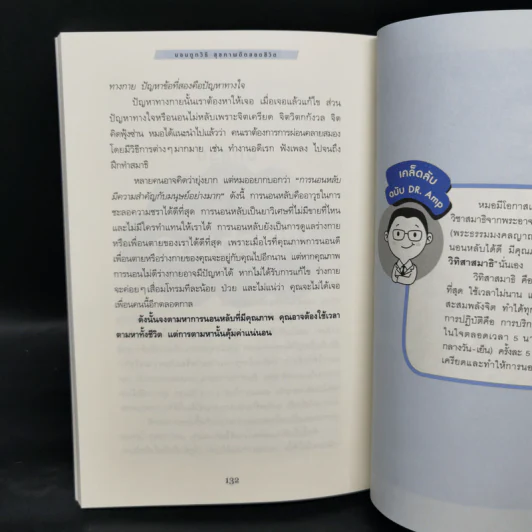 นอนถูกวิธี สุขภาพดีตลอดชีวิต
ทางกาย ปัญหาข้อที่สองคือปัญหาทางใจ
ปัญหาทางกายนั้นเราต้องหาให้เจอ เมื่อเจอแล้วแก้ไข ส่วน
ปัญหาทางใจหรือนอนไม่หลับเพราะจิตเครียด จิตวิตกกังวล จิต
คิดฟุ้งซ่าน หมอได้แนะนำไปแล้วว่า คนเราต้องการการผ่อนคลายสมอง
โดยมีวิธีการต่างๆมากมาย เช่น ทำงานอดิเรก ฟังเพลง ไปจนถึง
ฝึกทำสมาธิ
หลายคนอาจคิดว่ายุ่งยาก แต่หมออยากบอกว่า "การนอนหลับ
มีความสำคัญกับมนุษย์อย่างมาก" ดังนี้ การนอนหลับคืออาวุธในการ
ชะลอความชราได้ดีที่สุด การนอนหลับเป็นยาวิเศษที่ไม่มีขายที่ไหน
และไม่มีใครทำแทนให้เราได้ การนอนหลับยังเป็นการดูแลร่างกาย
หรือเพื่อนตายของเราได้ดีที่สุด เพราะเมื่อไรที่คุณภาพการนอนดี
เพื่อนตายหรือร่างกายของคุณจะอยู่กับคุณไปอีกนาน แต่หากคุณภาพ
การนอนไม่ดีร่างกายอาจมีปัญหาได้ หากไม่ได้รับการแก้ไข ร่างกาย
จะค่อยๆเสื่อมโทรมทีละน้อย ป่วย และไม่แน่ว่า คุณจะไม่ได้เจอ
เพื่อนคนนี้อีกตลอดกาล
ดังนั้นจงตามหาการนอนหลับที่มีคุณภาพ คุณอาจต้องใช้เวลา
ตามหาทั้งชีวิต แต่การตามหานั้นคุ้มค่าแน่นอน
132
เคล็ดลับ
ฉบับ DR. Amp
หมอมีโอกาส
วิชาสมาธิจากพระอาจ
(พระธรรมมงคลญาณ
นอนหลับได้ดี มีคุณ
วิทิสาสมาธิ"นั่นเอง
วิทิสาสมาธิ คือ
ที่สุด ใช้เวลาไม่นาน แ
สะสมพลังจิต ทำได้ทุก
การปฏิบัติคือ การบริก
ในใจตลอดเวลา 5 นา
กลางวัน-เย็น) ครั้งละ 5
เครียดและทำให้การนอ